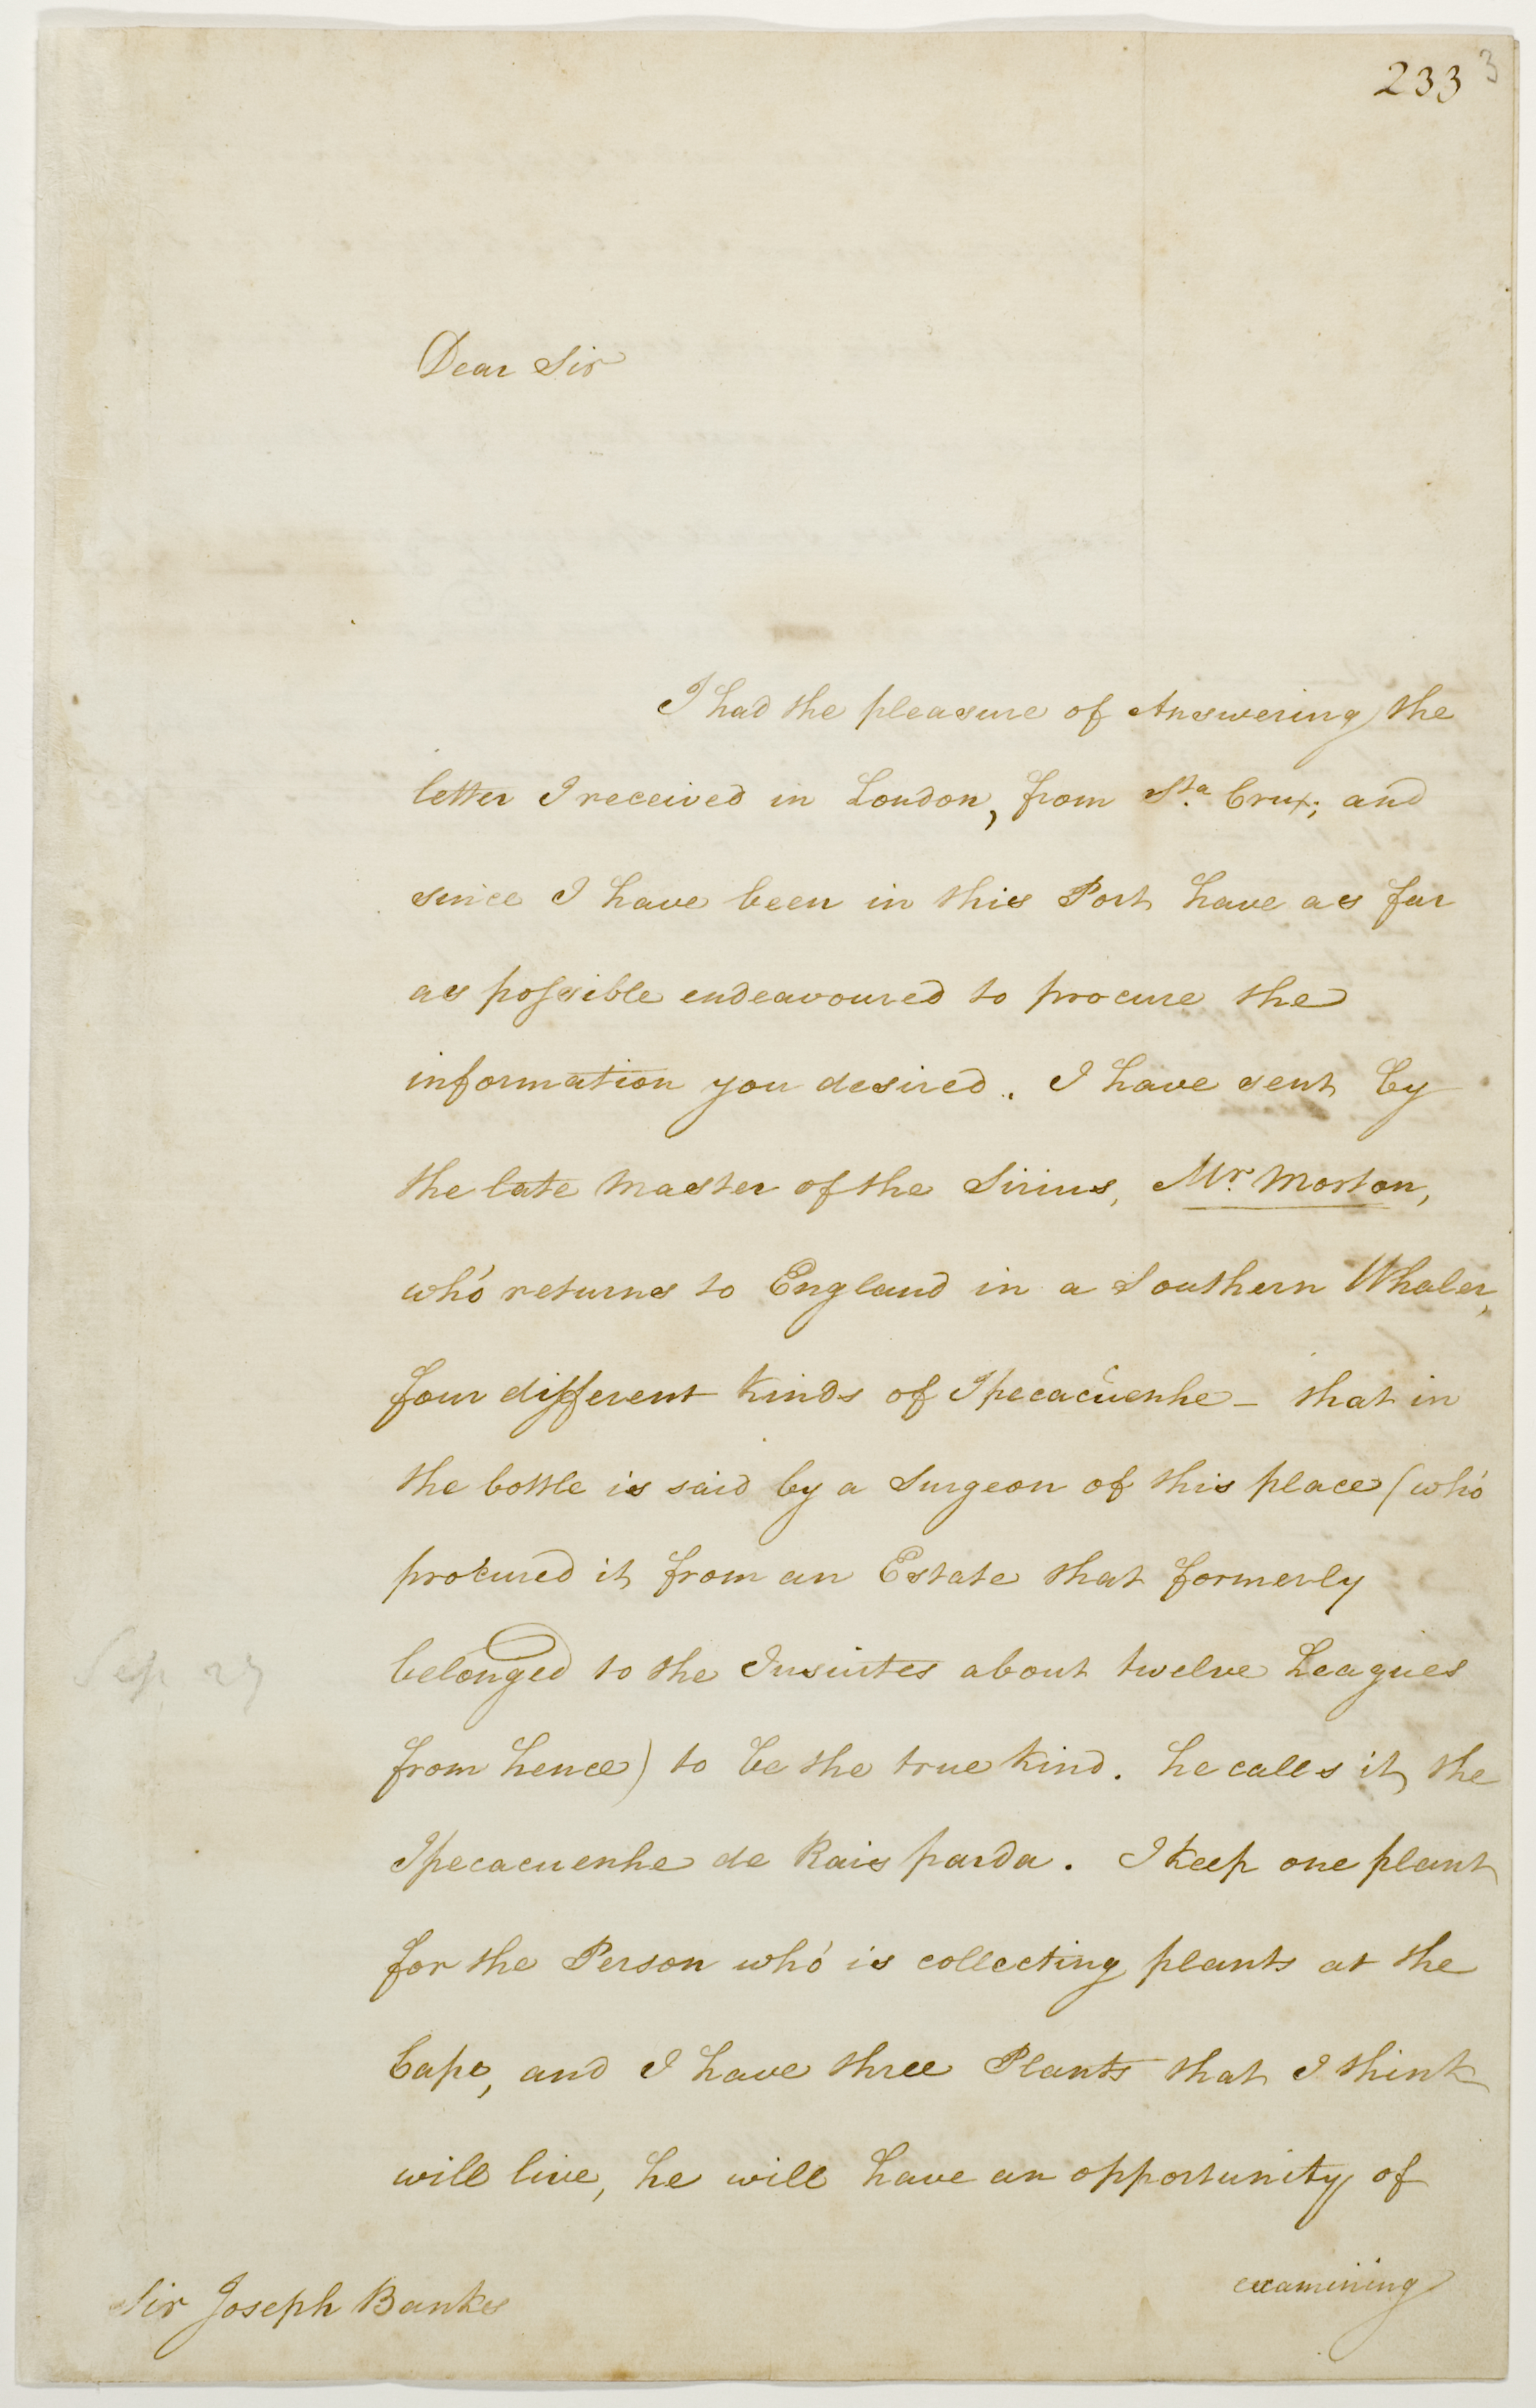 233 3
Dear Sir
I had the pleasure of Answering the
letter I received in London, from Sta. Crux; and
since I have been in this Port have as far
as possible endeavoured to procure the
information you desired. I have sent by
the late Master of the Sirius, Mr. Morton,
who returns to England in a Southern Whaler,
four different kinds of Ipecacuenhe - that in
the bottle is said by a Surgeon of this place (who
procured it from an Estate that formerly
belonged to the Jusuites about twelve Leagues
from hence) to be the true kind. he calls it the
Ipecacuenhe de Rais parda. I keep one plant
for the Person who is collecting plants at the
Cape, and I have three Plants that I think
will live, he will have an opportunity of
examining
Sir Joseph Banks
Sep. 27